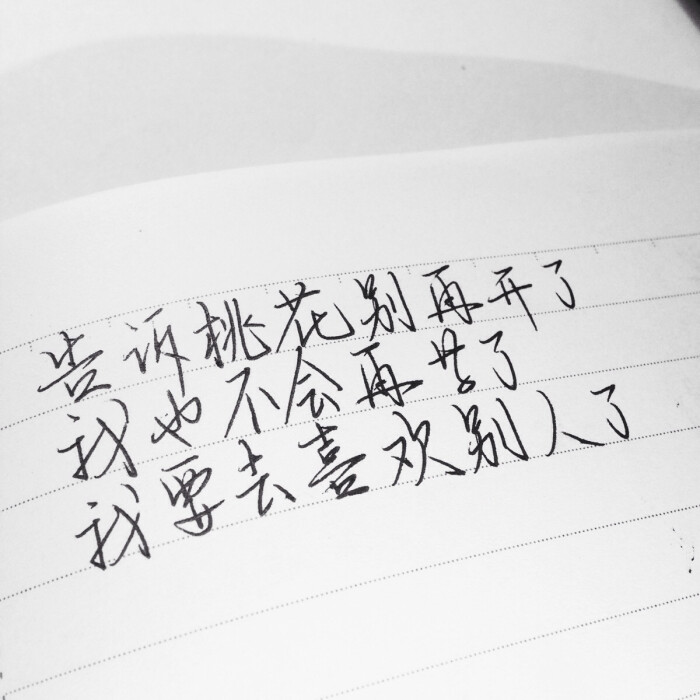 告诉桃花别再开了
我也不会再等了
我要去喜欢别人了